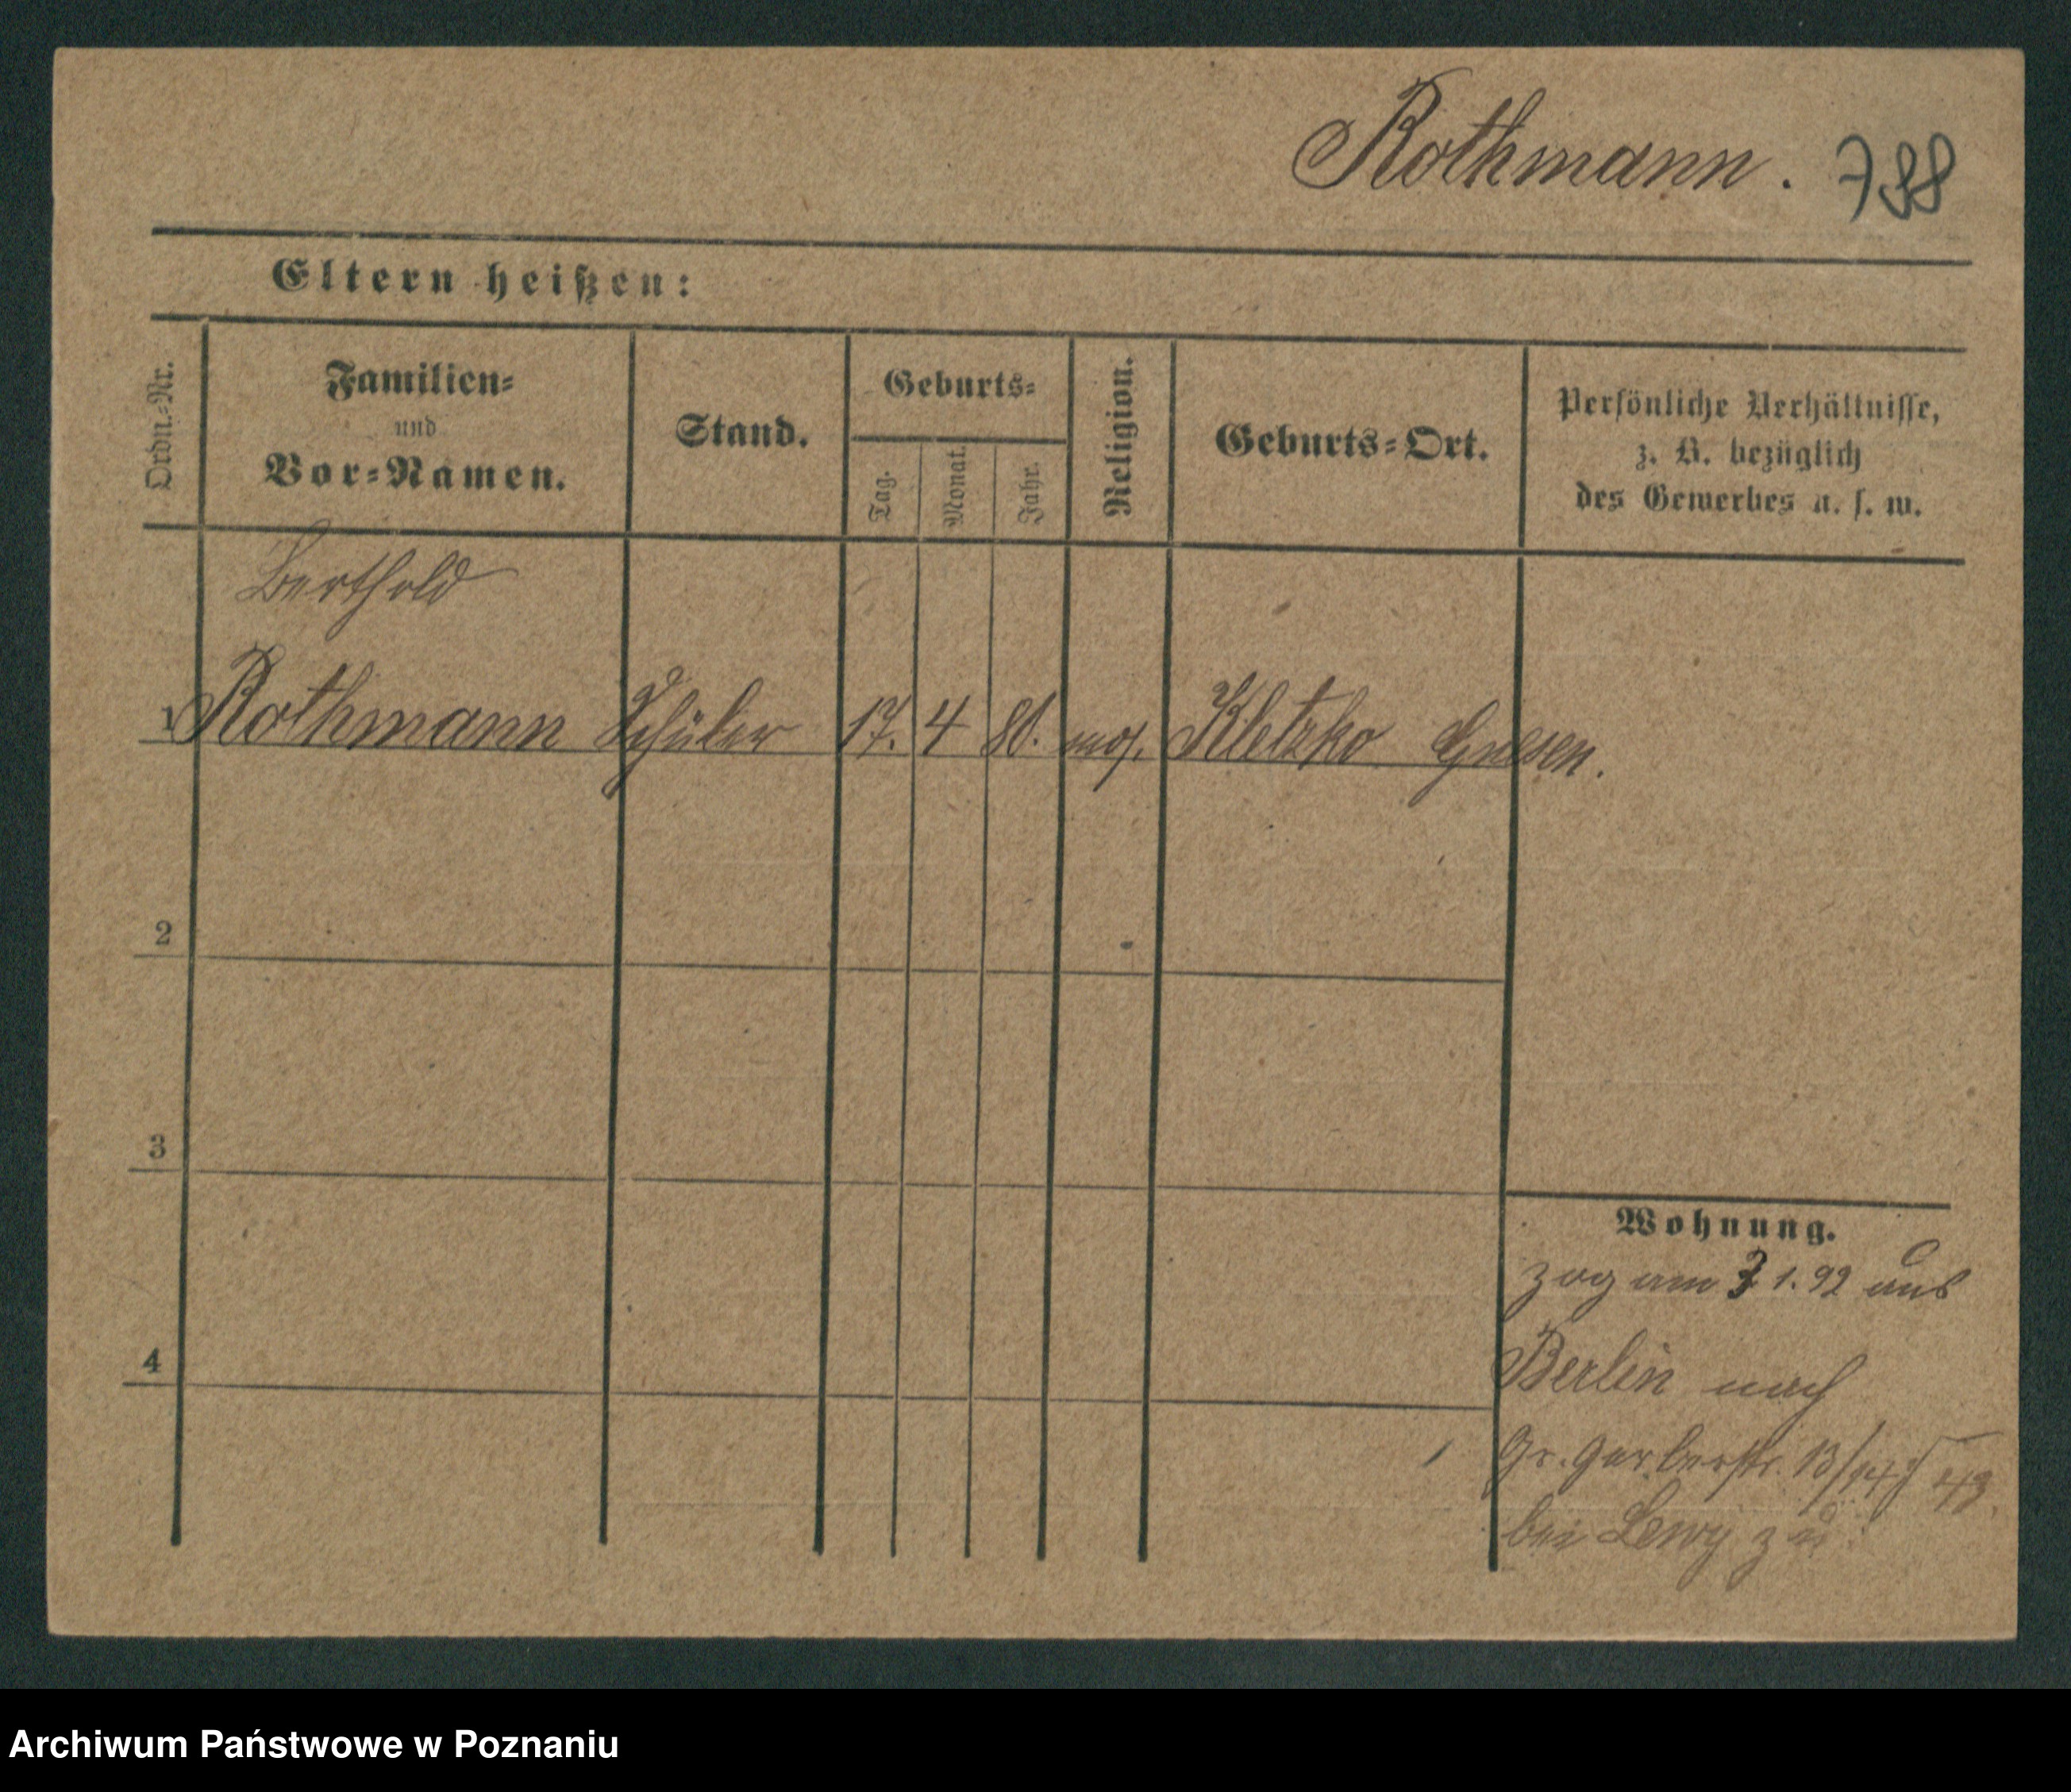 Rothmann. 788
Eltern heißen:
Ordn.-Nr.
Familien-
und
Vor-Namen.
Stand.
Geburts-
Tag.
Monat.
Jahr.
Religion.
Geburts-Ort.
Persönliche Verhältnisse,
z. B. bezüglich
des Gewerbes u. s. w.
Berthold
1 Rothmann Schüler 17. 4 80. mos. Kletzko Gnesen.
2
3
4
Wohnung.
zog am 3 1. 92 aus
Berlin nach
Gr. Gerberstr. 13/14 43
bei Lewy zu
Archiwum Państwowe w Poznaniu